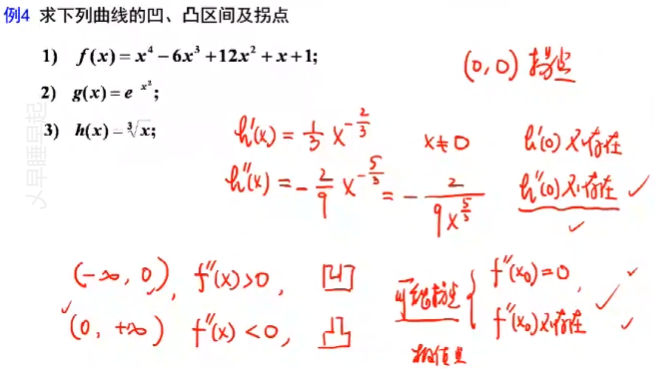 例4 求下列曲线的凹、凸区间及拐点
1) f(x)=x⁴−6x³+12x²+x+1;
(0,0) 拐点
2) g(x)=e^{-x²};
3) h(x)=∛x;
h'(x)=1/3 x^{-2/3} x≠0 h'(0)不存在
h''(x)=-2/9 x^{-5/3}=-2/(9x^{5/3}) h''(0)不存在 ✓
✓
(-∞,0), f''(x)>0, 凹
(0,+∞) f''(x)<0, 凸
可能拐点 { f''(x₀)=0, ✓
f''(x₀)不存在 ✓
极值点
早睡早起